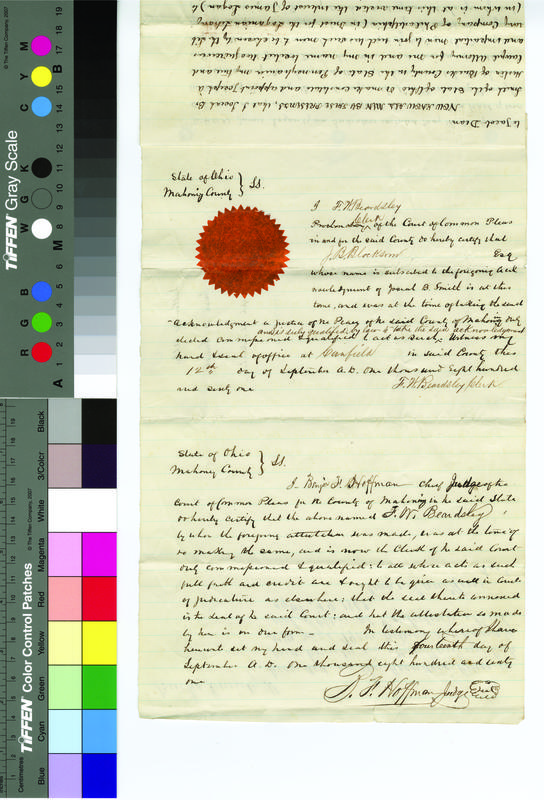 to Jacob Dean
NOW KNOW ALL MEN BY THESE PRESENTS, that I, Josiah B.
Smith of the State of Ohio do make constitute and appoint Joseph
of Bucks County in the State of Pennsylvania my true and
lawful Attorney for me and in my name
Company of Philadelphia
State of Ohio
Mahonig County } SS.
I F. W. Beardsley
Clerk of the Court of Common Pleas
in and for the said County do hereby certify that
J. B. Blocksom Esq
whose name is subscribed to the foregoing Ack
nowledgment of Josiah B. Smith is at this
time, and was at the time of taking the said
Acknowledgment a Justice of the Peace of the said County of Mahonig duly
and is duly qualified by law to take the said acknowledgment
elected commissioned & qualified & acts as such. Witness my
hand & seal of office at Canfield in said County this
12th day of September A.D. One thousand Eight hundred
and sixty one F. W. Beardsley Clerk
State of Ohio
Mahonig County } SS.
I Benj. F. Hoffman Chief Judge of the
Court of Common Pleas for the County of Mahonig in the said State
do hereby certify that the above named F. W. Beardsley
by whom the foregoing attestation was made, was at the time of
so making the same, and is now the Clerk of the said Court
duly commissioned & qualified: to all whose acts as such
full faith and credit are & ought to be given as well in Courts
of judicature as elsewhere: that the seal thereto annexed
is the seal of the said Court: and that the attestation so made
by him is in due form. In testimony whereof I have
hereunto set my hand and seal this fourteenth day of
September A. D. One thousand eight hundred and sixty
one
B. F. Hoffman Judge Seal
© The Tiffen Company, 2007
TIFFEN Gray Scale
R G B W G K C Y M
A 1 2 3 4 5 6 M 8 9 10 11 12 13 14 15 B 17 18 19
TIFFEN Color Control Patches
© The Tiffen Company, 2007
Centimetres
Inches
Blue Cyan Green Yellow Red Magenta White 3/Color Black